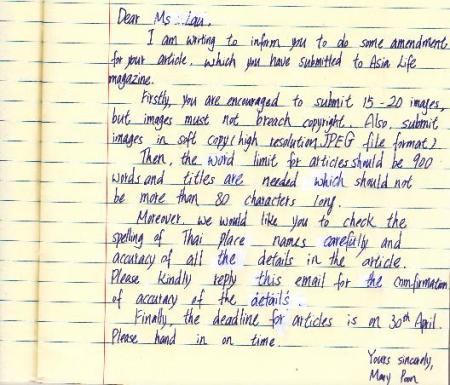 Dear Ms. Lau,
I am writing to inform you to do some amendment
for your article, which you have submitted to Asia Life
magazine.
Firstly, you are encouraged to submit 15-20 images,
but images must not breach copyright. Also, submit
images in soft copy (high resolution JPEG file format)
Then, the word limit for articles should be 900
words and titles are needed which should not
be more than 80 characters long.
Moreover, we would like you to check the
spelling of Thai place names carefully and
accuracy of all the details in the article.
Please kindly reply this email for the comfirmation
of accuracy of the details.
Finally, the deadline for articles is on 30th April.
Please hand in on time.
Yours sincerely,
Mary Pan